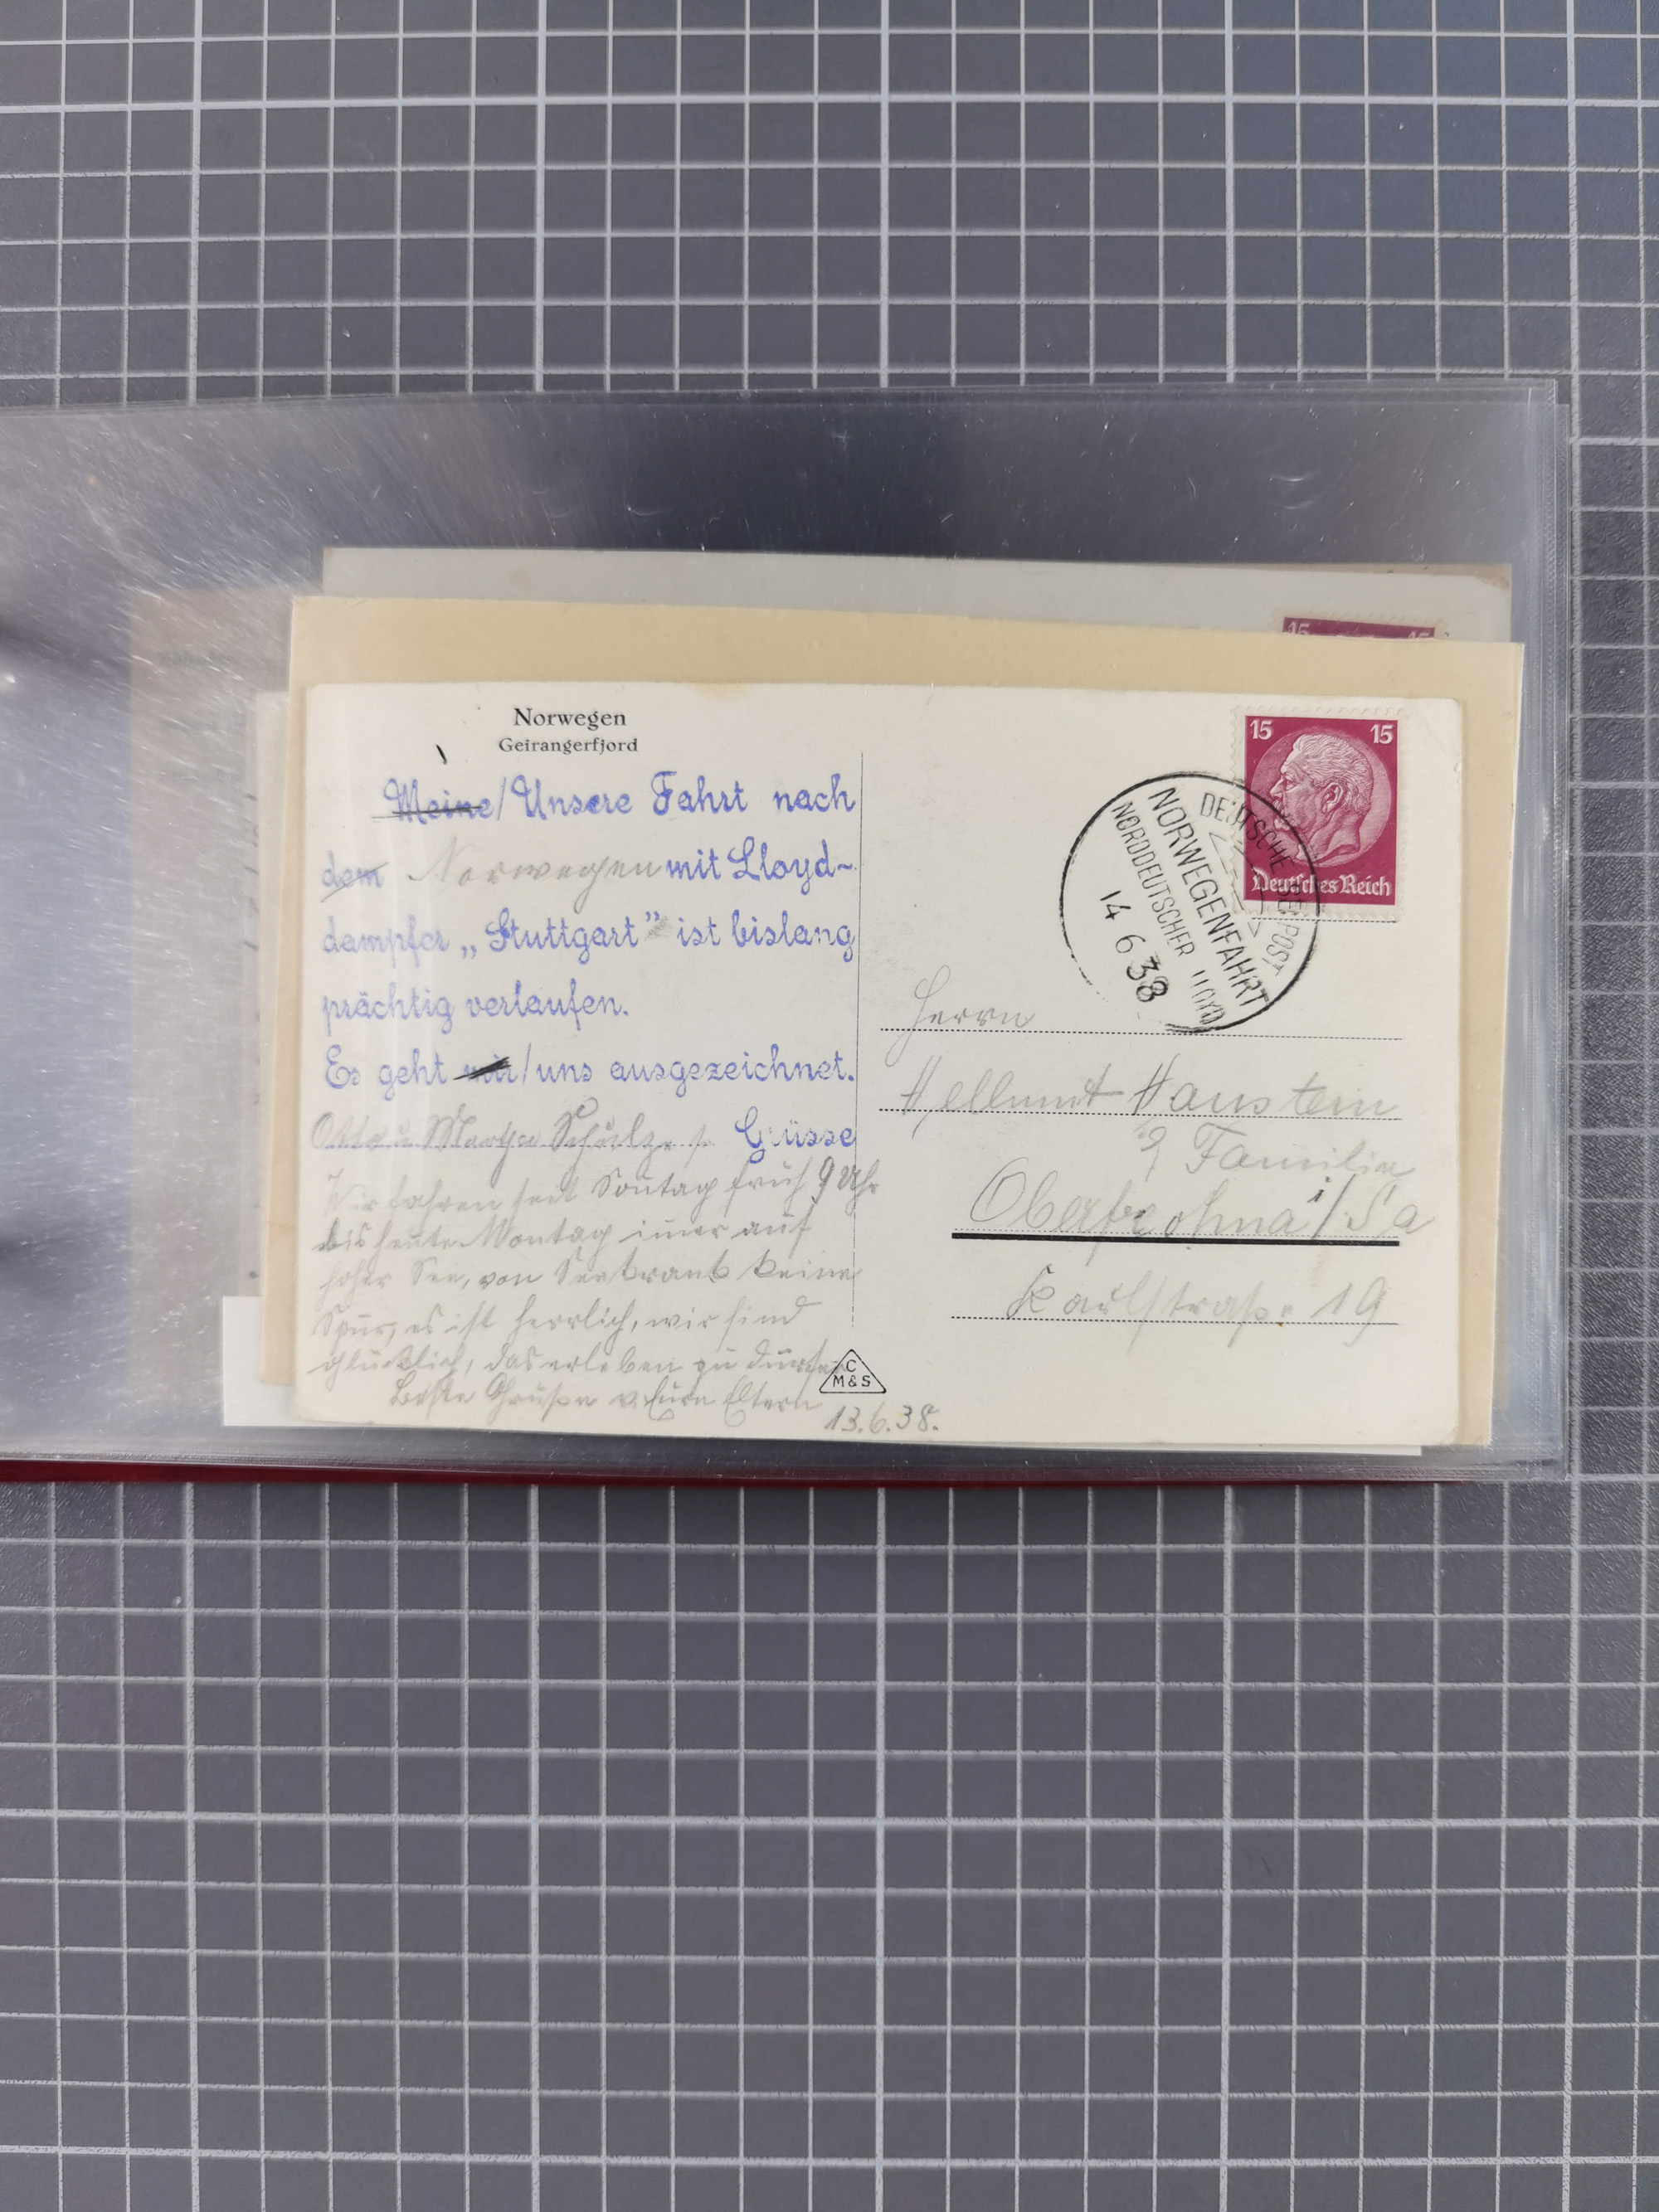 15 15
Norwegen
Geirangerfjord
Meine/Unsere Fahrt nach
dem Norwegen mit Lloyd-
dampfer „Stuttgart” ist bislang
prächtig verlaufen.
Es geht mir/uns ausgezeichnet.
Otto u Martha Schulze Grüsse
Wir fahren seit Sonntag früh 9 Uhr
bis heute Montag imer auf
hoher See, von Seekrank keine
Spur, es ist herrlich, wir sind
glücklich, das erleben zu dürfen
Beste Grüße v. Eure Eltern
13.6.38.
C
M&S
15 15
Deutsches Reich
DEUTSCHE SEEPOST
NORWEGENFAHRT
NORDDEUTSCHER LLOYD
14 6 38
Herrn
Hellmut Haustein
& Familie
Oberfrohna i/Sa
Karlstraße 19